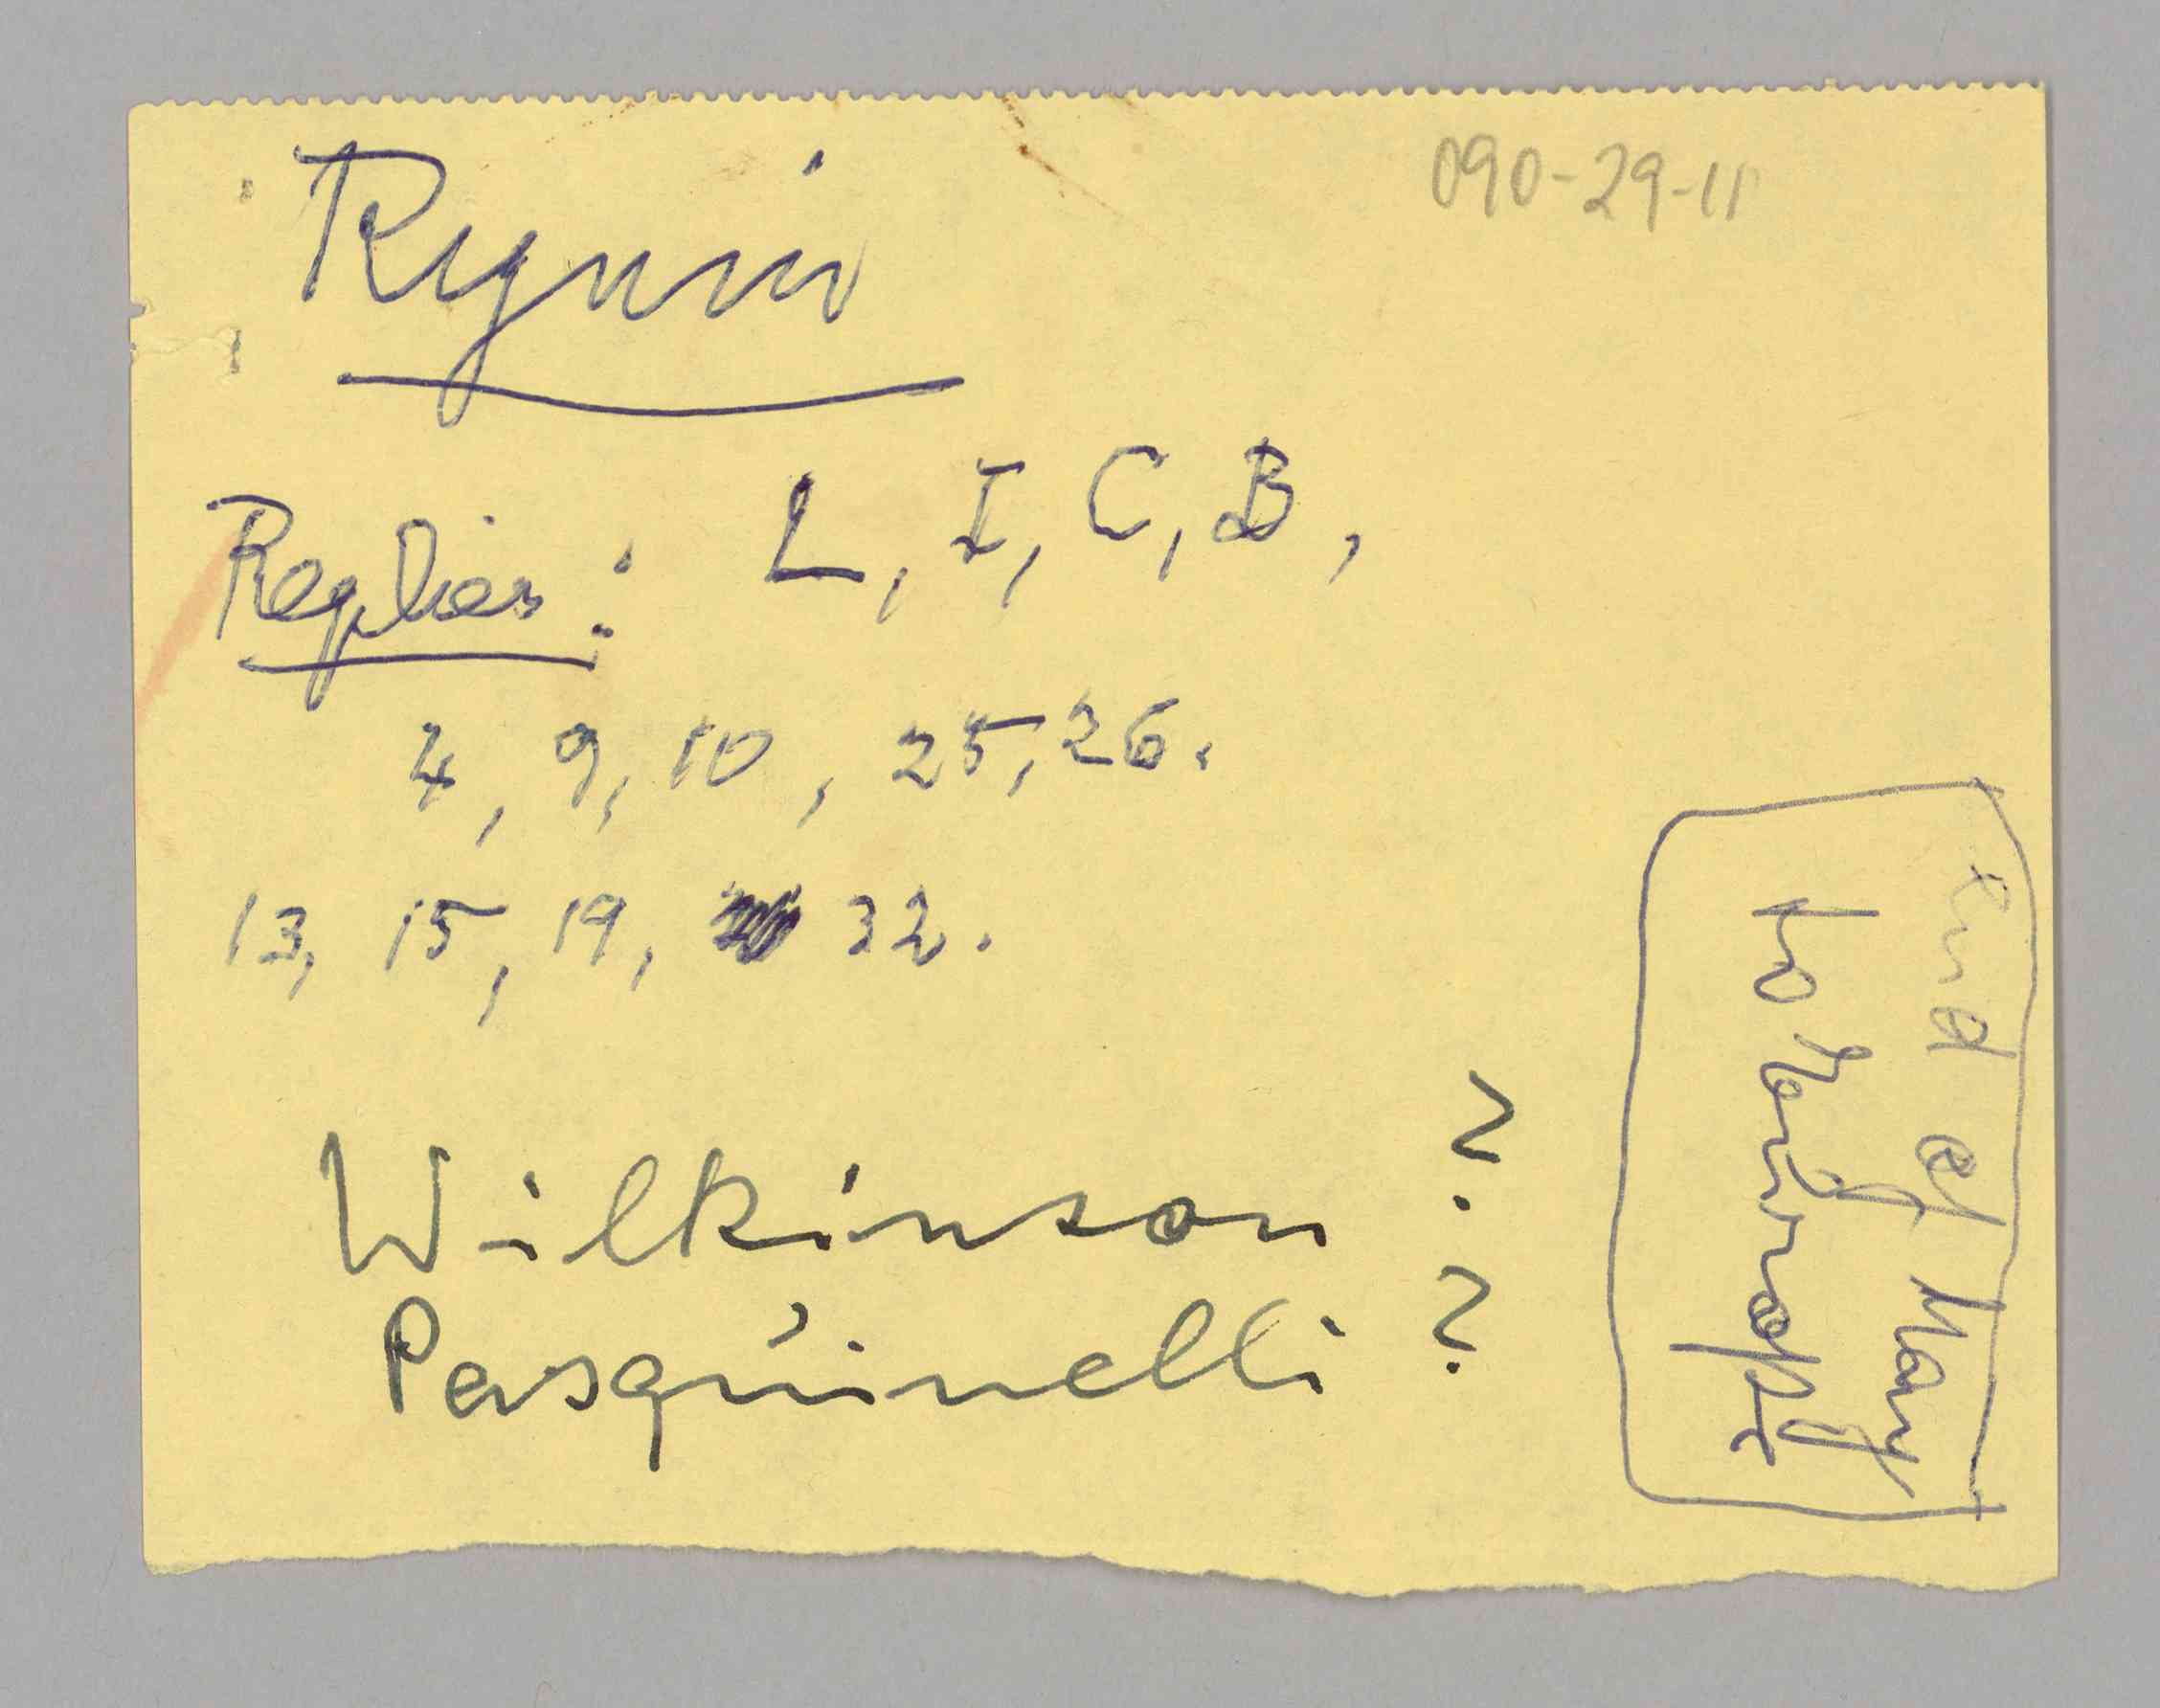 090-29-11
Rynin
Replies: L, I, C, B,
4, 9, 10, 25, 26.
13, 15, 19, 32.
Wilkinson ?
Pasquinelli ?
End of May
to Europe